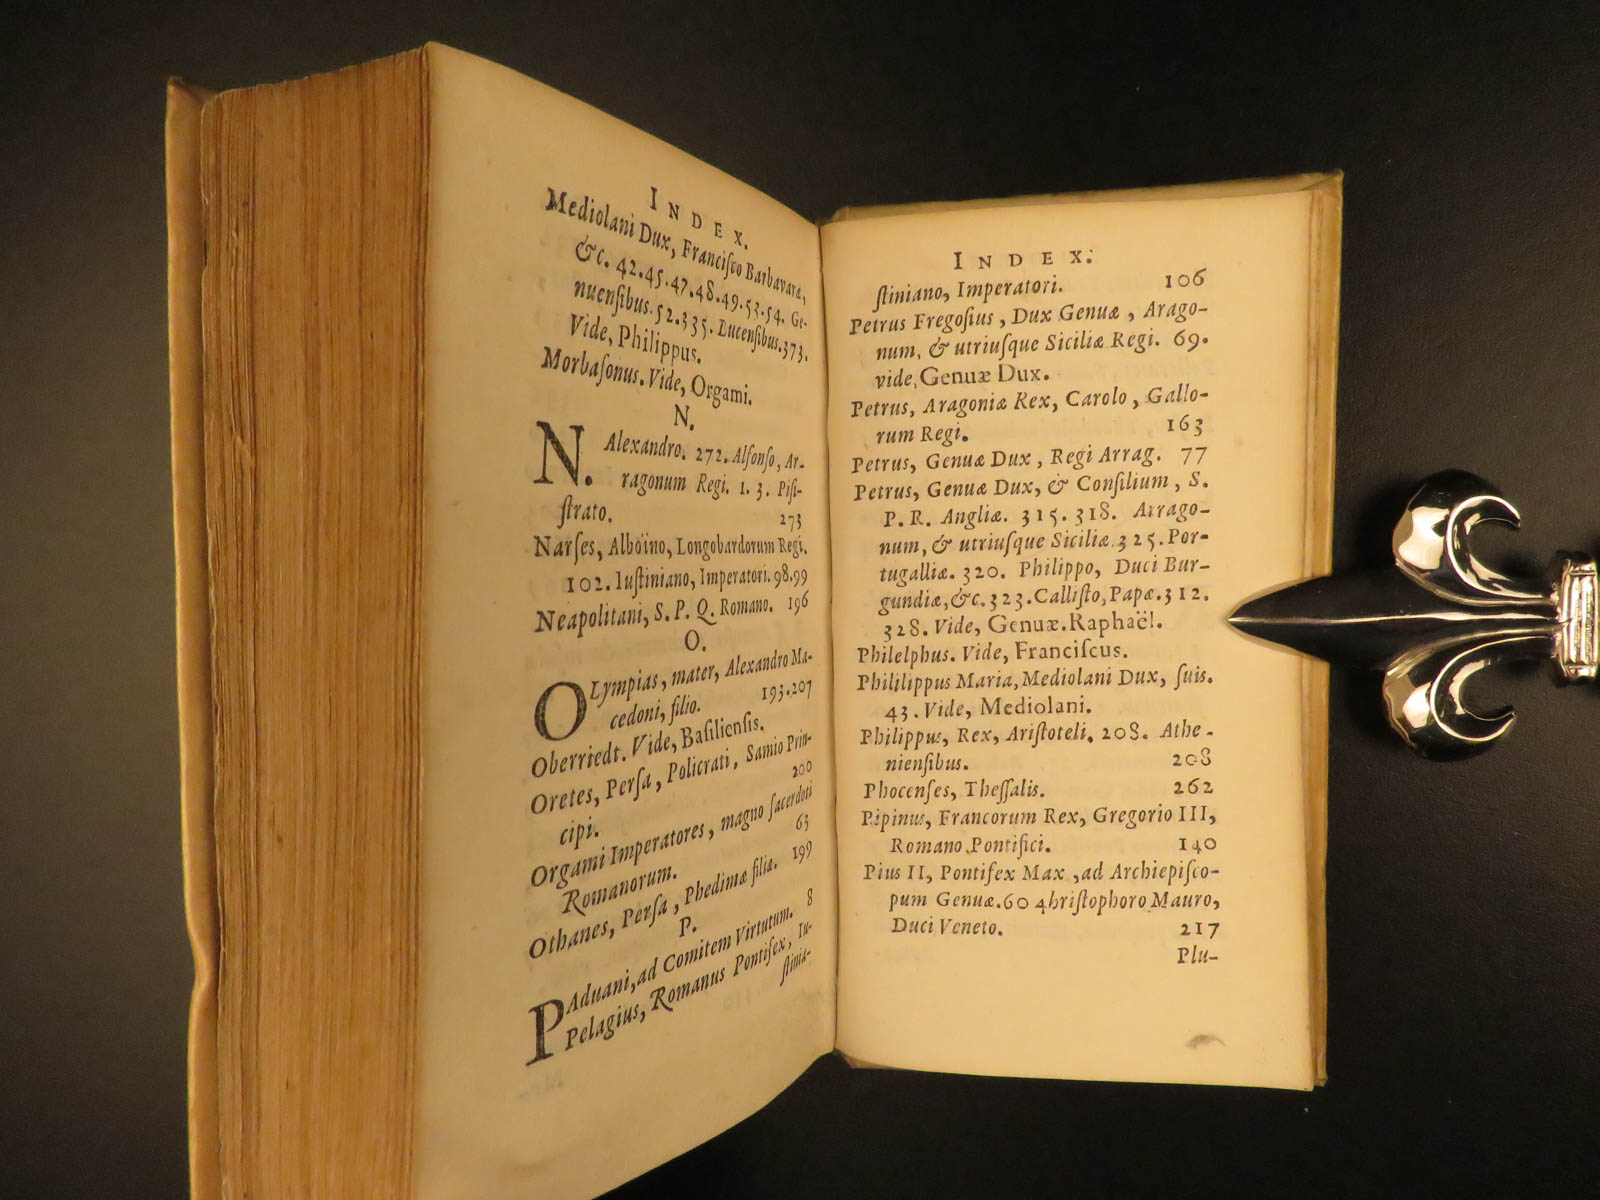 INDEX.
Mediolani Dux, Franciſco Barbavaræ,
&c. 42.45.47.48.49.53.54. Ge-
nuenſibus. 52.335. Lucenſibus. 373.
Vide, Philippus.
Morbaſonus. Vide, Orgami.
N.
N. Alexandro. 272. Alfonſo, Ar-
ragonum Regi. 1. 3. Piſi-
ſtrato. 273
Narſes, Alboïno, Longobardorum Regi.
102. Iuſtiniano, Imperatori. 98.99
Neapolitani, S. P. Q. Romano. 196
O.
OLympias, mater, Alexandro Ma-
cedoni, filio. 193.207
Oberriedt. Vide, Baſilienſis.
Oretes, Perſa, Policrati, Samio Prin-
cipi. 200
Orgami Imperatores, magno ſacerdoti
Romanorum. 63
Othanes, Perſa, Phedimæ filiæ. 199
P.
PAduani, ad Comitem Virtutum. 8
Pelagius, Romanus Pontifex, Iu-
ſtinia-
INDEX.
ſtiniano, Imperatori. 106
Petrus Fregoſius, Dux Genuæ, Arago-
num, & utriuſque Siciliæ Regi. 69.
vide, Genuæ Dux.
Petrus, Aragoniæ Rex, Carolo, Gallo-
rum Regi. 163
Petrus, Genuæ Dux, Regi Arrag. 77
Petrus, Genuæ Dux, & Conſilium, S.
P. R. Angliæ. 315.318. Arrago-
num, & utriuſque Siciliæ. 325. Por-
tugalliæ. 320. Philippo, Duci Bur-
gundiæ, &c. 323. Calliſto, Papæ. 312.
328. Vide, Genuæ. Raphaël.
Philelphus. Vide, Franciſcus.
Phililippus Maria, Mediolani Dux, ſuis.
43. Vide, Mediolani.
Philippus, Rex, Ariſtoteli. 208. Athe-
nienſibus. 208
Phocenſes, Theſſalis. 262
Pipinus, Francorum Rex, Gregorio III,
Romano Pontifici. 140
Pius II, Pontifex Max, ad Archiepiſco-
pum Genuæ. 60 4hriſtophoro Mauro,
Duci Veneto. 217
Plu-